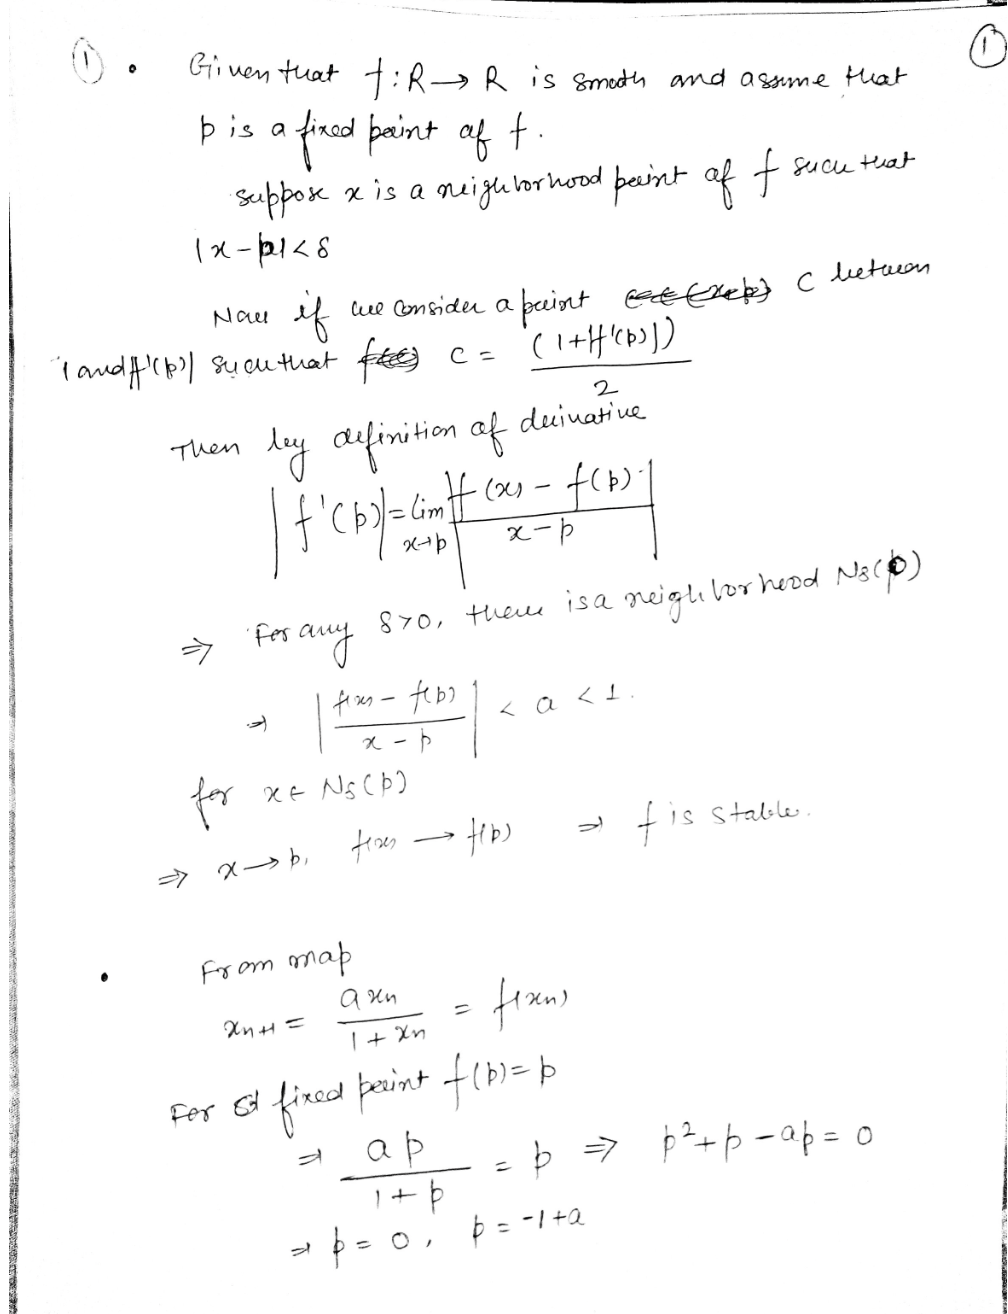 ① • Given that f: R → R is smooth and assume that ①
p is a fixed point of f.
suppose x is a neighborhood point of f such that
|x - p| < δ
Now if we consider a point c between
1 and |f'(p)| such that c = (1+|f'(p)|)/2
Then by definition of derivative
|f'(p)| = lim x→p |f(x) - f(p)/x - p|
⇒ For any δ>0, there is a neighborhood Nδ(p)
⇒ |f(x) - f(p)/x - p| < a < 1.
for x ∈ Nδ(p)
⇒ x → p, f(x) → f(p) ⇒ f is stable.
• From map
xn+1 = axn/1+xn = f(xn)
For fixed point f(p) = p
⇒ ap/1+p = p ⇒ p²+p-ap = 0
⇒ p = 0, p = -1+a